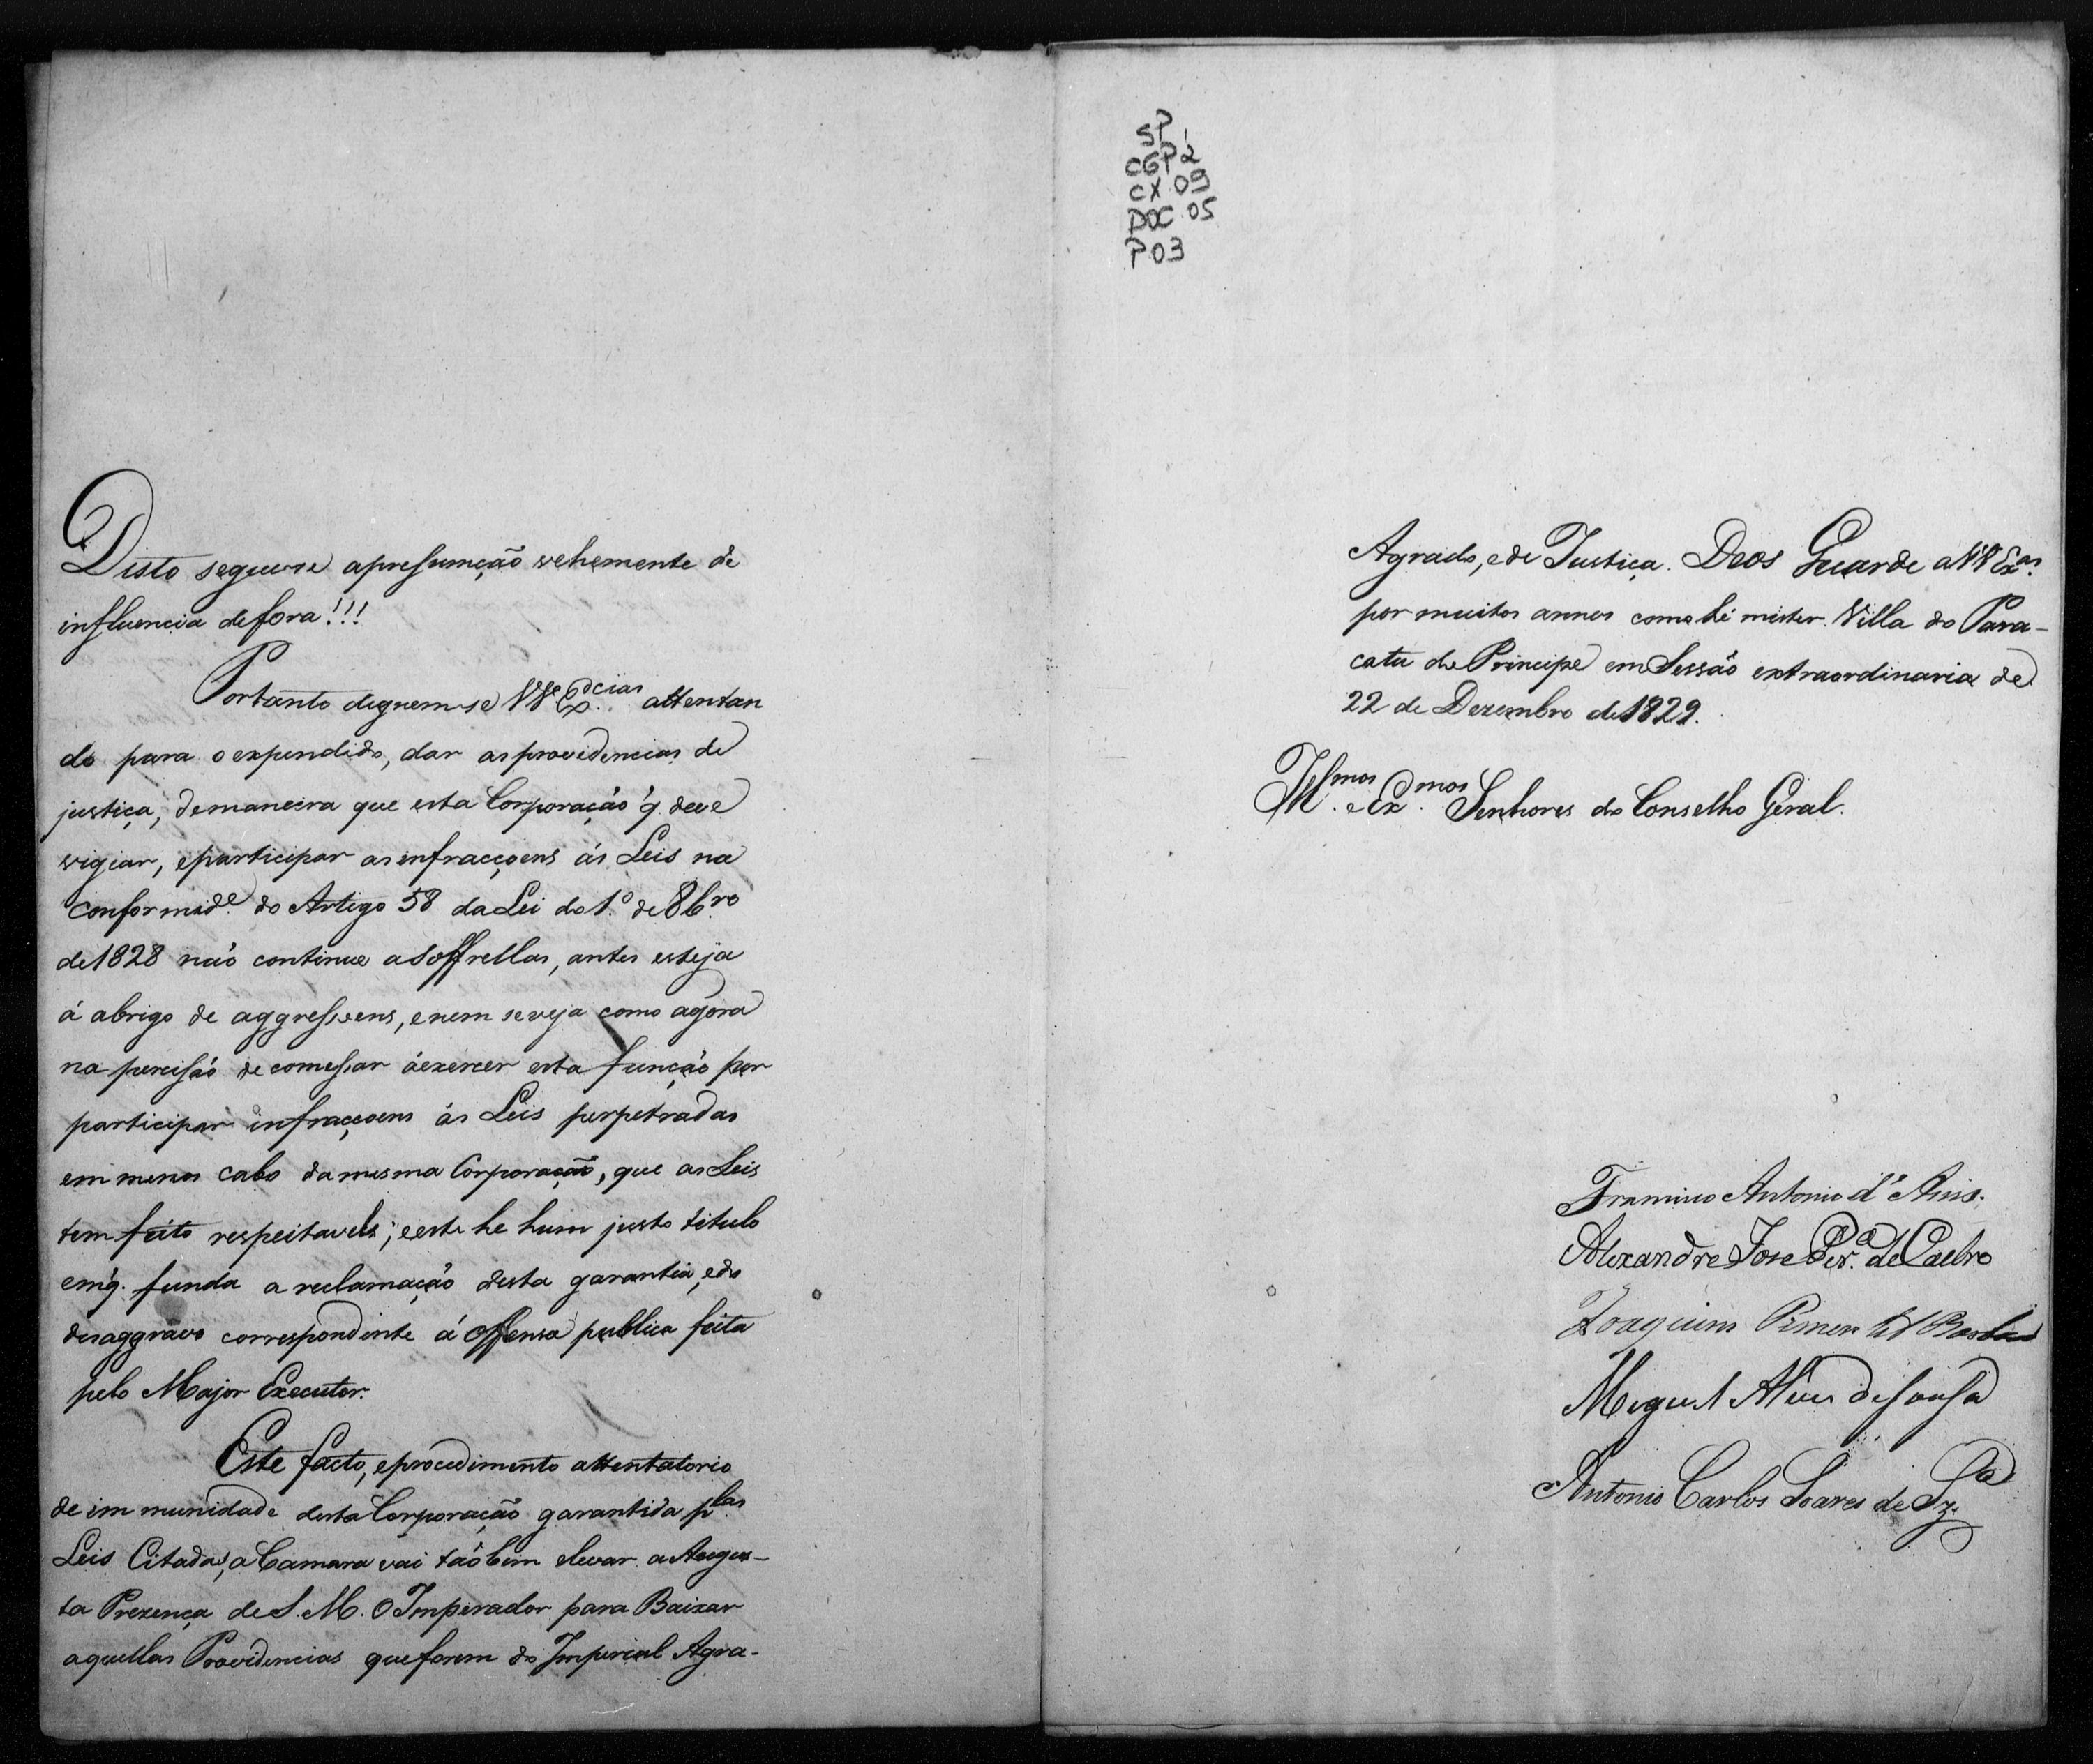 Disto seguese apresumção vehemente de
influencia defora!!!
Portanto degnem-se VVEx.cias attentan
do para o expendido, dar as providencias de
justiça, demaneira que esta Corporação q. deve
vigiar, eparticipar as infracçoens ás Leis na
conformid.e do Artigo 58 da Lei do 1.º de 8br.o
de 1828 naõ continue a soffrellas, antes esteja
á abrigo de aggressoens, enem seveja como agora
na percisaõ de comessar áexercer esta funcçaõ por
participar infracçoens ás Leis perpetradas
em menos cabo da mesma Corporação, que as Leis
tem feito respeitavels; eeste he hum justo titulo
emq. funda a reclamaçaõ desta garantia, edo
desaggravo correspondente á offensa publica feita
pelo Major Executor.
Este facto, eprocedimento attentatorio
de im munidade desta Corporação garantida p.las
Leis Citadas, a Camara vai taõbem elevar a Augus-
ta Prezença de S. M. O Imperador para Baixar
aquellas Providencias que forem do Imperial Agra-
SP
CGP 2
CX 09
DOC 05
P.03
Agrado, ede Justiça. Deos Guarde a VVEx.as
por muitos annos como hé mister. Villa do Para-
catu do Principe em Sessaõ extraordinaria de
22 de Dezembro de 1829.
Ill.mos e Ex.mos Senhores do Conselho Geral.
Antonio d'
Alexandre Jose Per.a de Castro
Joaquim Pimentel Barbosa
Miguel Alves de Sousa
Antonio Carlos Soares de Sz.a